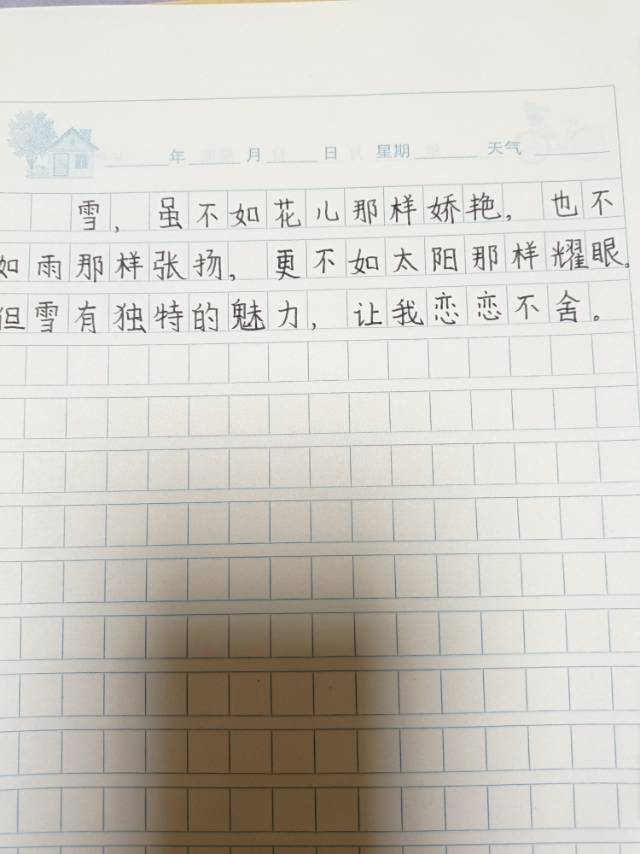 年 月 日 星期 天气
雪，虽不如花儿那样娇艳，也不
如雨那样张扬，更不如太阳那样耀眼。
但雪有独特的魅力，让我恋恋不舍。